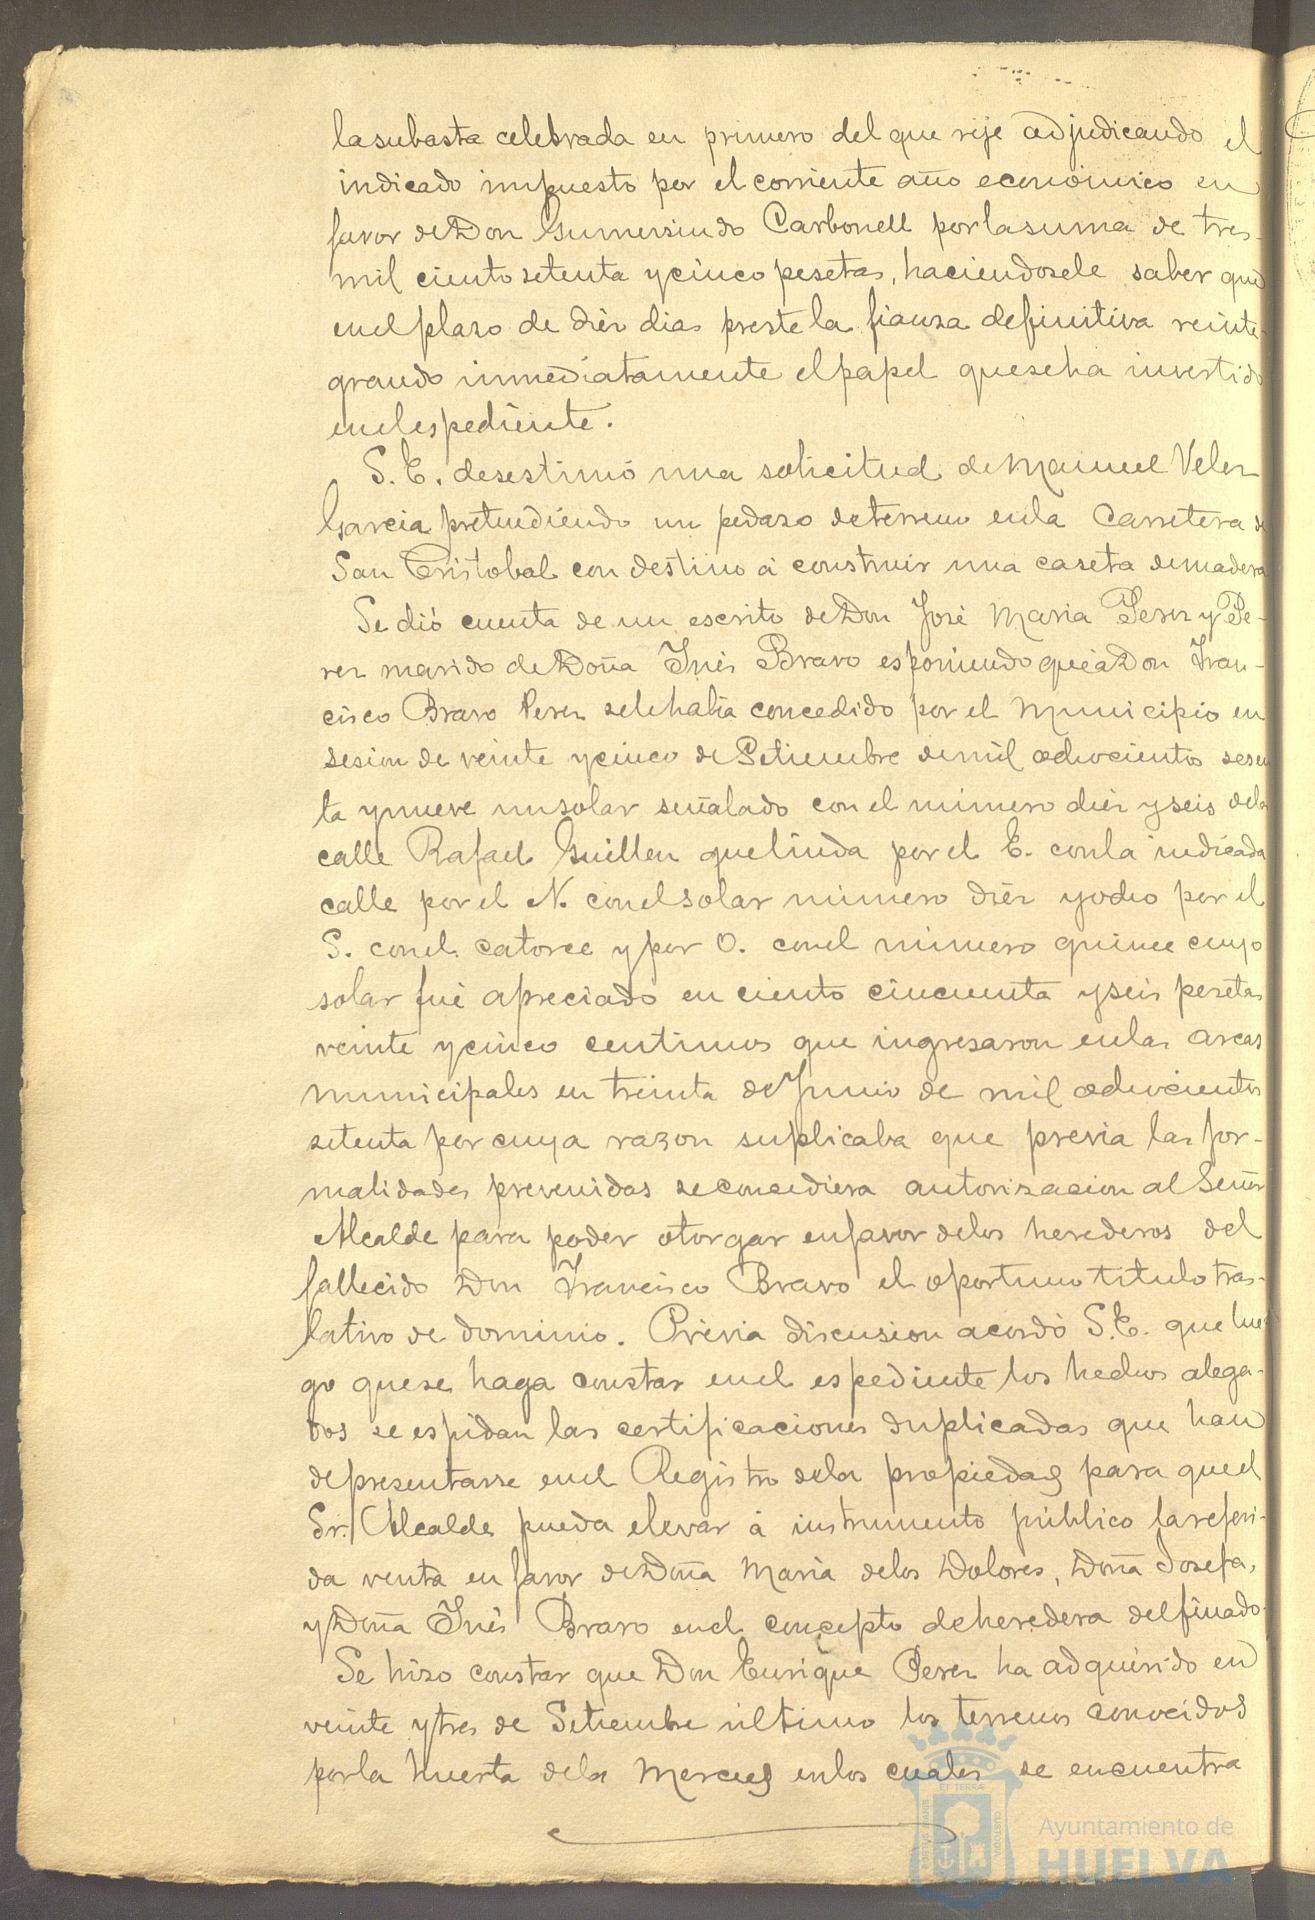 la subasta celebrada en primero del que rije adjudicando el
indicado impuesto por el corriente año económico en
favor de Don Gumersindo Carbonell por la suma de tres
mil ciento setenta y cinco pesetas, haciendosele saber que
en el plazo de diéz dias preste la fianza definitiva reinte-
grando inmediatamente el papel que se ha invertido
en el espediente.
S. E. desestimó una solicitud de Manuel Velez
Garcia pretendiendo un pedazo de terreno en la Carretera de
San Cristobal con destino á construir una caseta de madera
Se dió cuenta de un escrito de Don José Maria Perez y Pe-
rez marido de Doña Inés Bravo esponiendo que á Don Fran-
cisco Bravo Perez se le habia concedido por el Municipio en
sesion de veinte y cinco de Setiembre de mil ochocientos sesen
ta y nueve un solar señalado con el número diéz y seis de la
calle Rafael Guillen que linda por el E. con la indicada
calle por el N. con el solar número diéz y ocho por el
S. con el catorce y por O. con el número quince cuyo
solar fué apreciado en ciento cincuenta y seis pesetas
veinte y cinco centimos que ingresaron en las arcas
municipales en treinta de Junio de mil ochocientos
setenta por cuya razon suplicaba que previa las for-
malidades prevenidas se concediera autorizacion al Señor
Alcalde para poder otorgar en favor de los herederos del
fallecido Don Francisco Bravo el oportuno titulo tras-
lativo de dominio. Prévia discusion acordó S. E. que lue
go que se haga constar en el espediente los hechos alega-
dos se espidan las certificaciones duplicadas que han
de presentarse en el Registro de la propiedad para que el
Sr. Alcalde pueda elevar á instrumento público la referi-
da venta en favor de Doña Maria de los Dolores, Doña Josefa,
y Doña Inés Bravo en el concepto de heredera del finado.
Se hizo constar que Don Enrique Perez ha adquirido en
veinte y tres de Setiembre ultimo los terrenos conocidos
por la huerta de la Merced en los cuales se encuentra
Ayuntamiento de
HUELVA